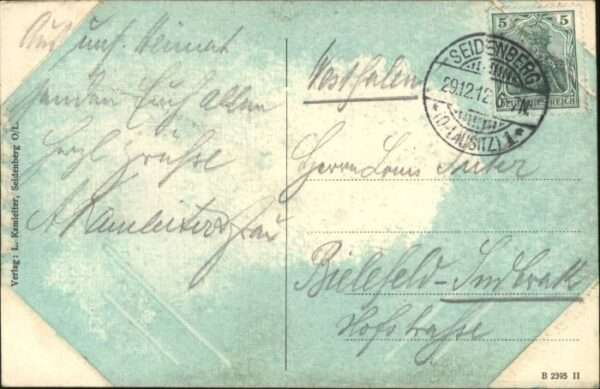 Aus uns. Heimat
senden Euch Allen
herzl. Grüsse
A Kamleiter u Frau
Westfalen
Herrn Louis
Bielefeld-
Hofstrasse
5 5
DEUTSCHES REICH
SEIDENBERG
29.12.12
*(O.LAUSITZ) 1*
Verlag: L. Kamleiter, Seidenberg O/L.
B 2395 II